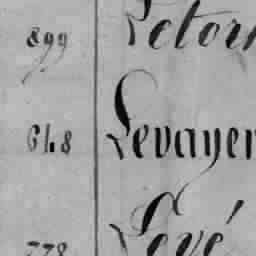 899 Letorn
648 Levayer
778 Levé